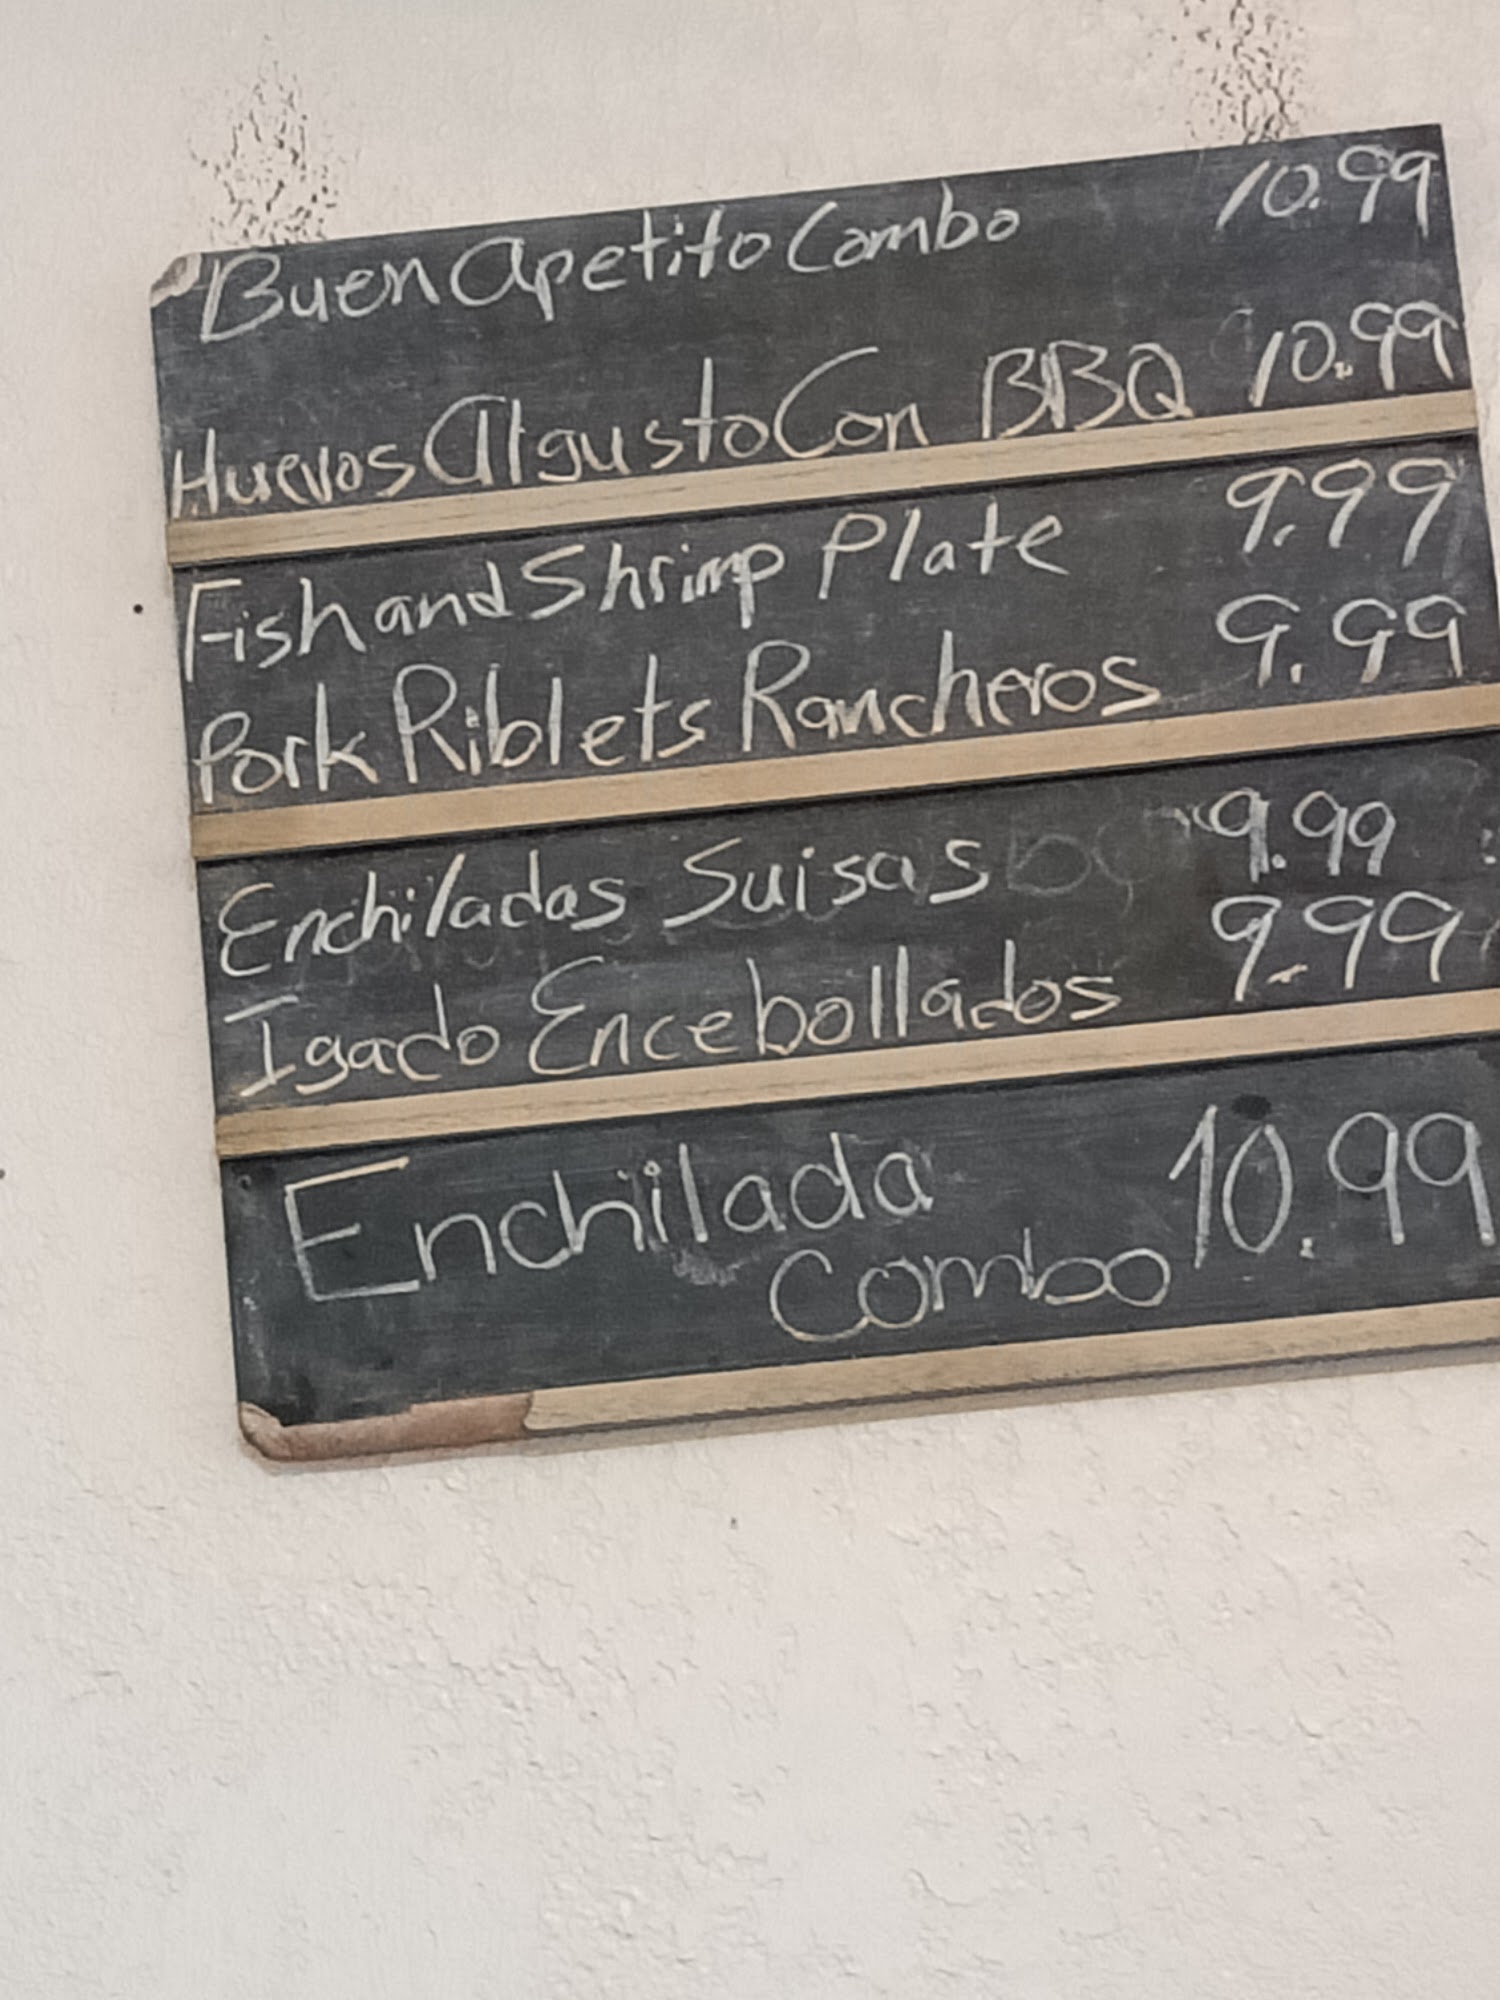 Buen Apetito Combo 10.99
Huevos Al gusto Con BBQ 10.99
Fish and Shrimp Plate 9.99
Pork Riblets Rancheros 9.99
Enchiladas Suisas 9.99
Igado Encebollados 9.99
Enchilada 10.99
Combo